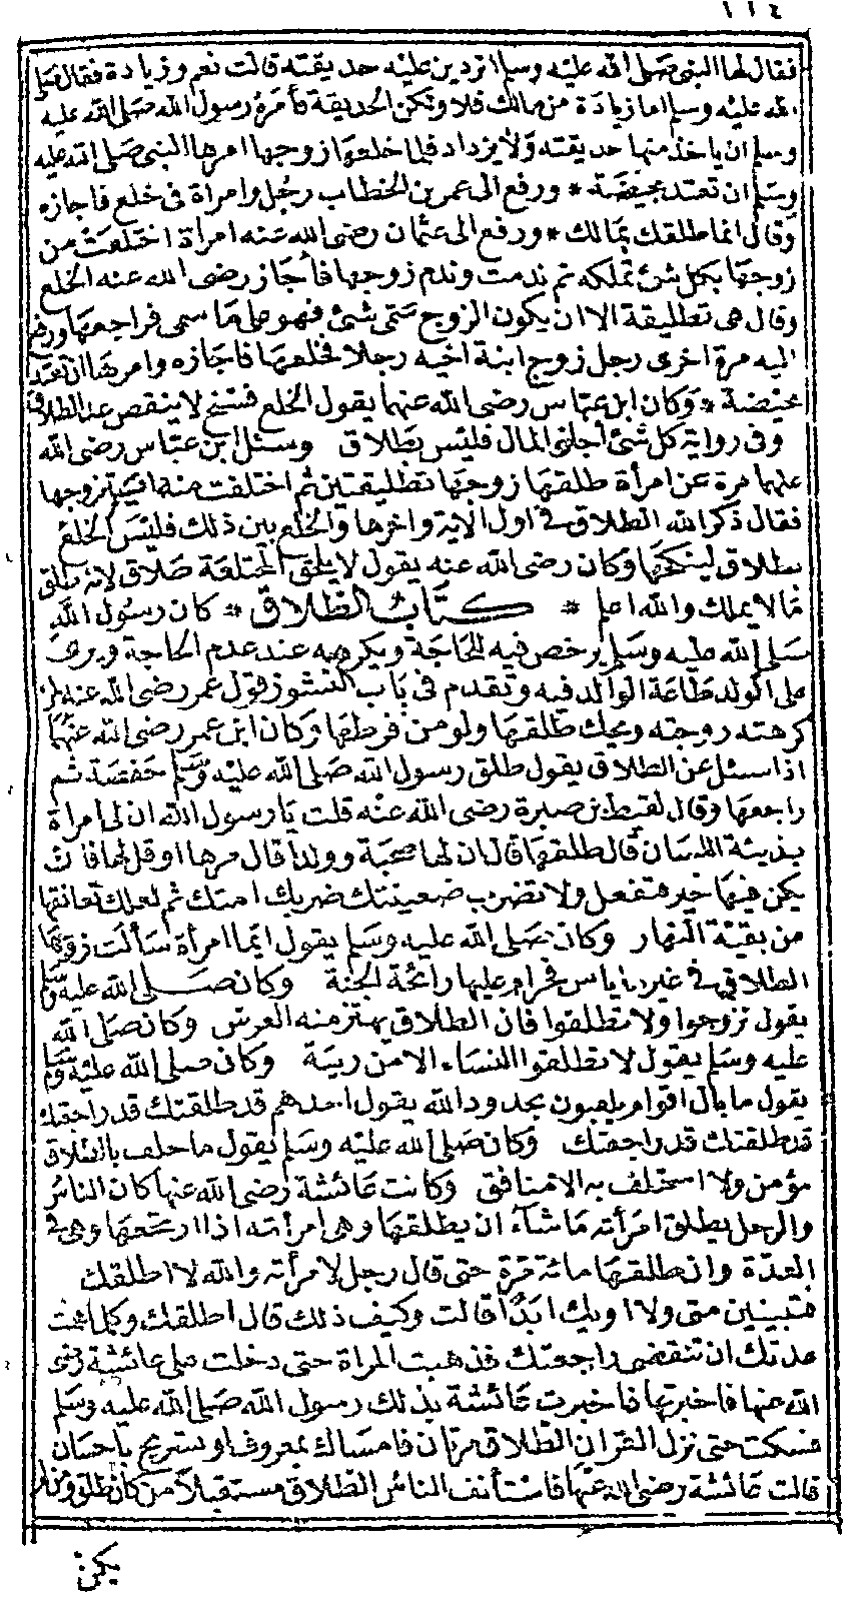 ١١٤
فقال لها النبى صلى الله عليه وسلم اتردين عليه حديقته قالت نعم وزيادة فقال صلى
الله عليه وسلم اما زيادة من مالك فلا ولكن الحديقة فأمره رسول الله صلى الله عليه
وسلم ان ياخذ منها حديقته ولا يزداد فلما خلعها زوجها امرها النبى صلى الله عليه
وسلم ان تعتد بحيضة * ورفع الى عمر بن الخطاب رجل وامرأة فى خلع فاجازه
وقال انما طلقك بمالك * ورفع الى عثمان رضى الله عنه امرأة اختلعت من
زوجها بكل شئ تملكه ثم ندمت وندم زوجها فأجاز رضى الله عنه الخلع
وقال هى تطليقة الا ان يكون الزوج سمى شئ فهو على ما سمى فراجعها ورفع
اليه مرة اخرى رجل زوج ابنة اخيه رجلا فخلعها فاجازه وامرها ان تعتد
بحيضة * وكان ابن عباس رضى الله عنهما يقول الخلع فسخ لا ينقص عدد الطلاق
وفى رواية كل شئ أجازه المال فليس بطلاق وسئل ابن عباس رضى الله
عنهما مرة عن امرأة طلقها زوجها تطليقتين ثم اختلعت منه أيتزوجها
فقال ذكر الله الطلاق فى اول الاية واخرها والخلع بين ذلك فليس الخلع
بطلاق لينكحها وكان رضى الله عنه يقول لا يلحق المختلعة طلاق لانه طلق
ما لا يملك والله اعلم * كتاب الطلاق * كان رسول الله
صلى الله عليه وسلم يرخص فيه للحاجة ويكرهه عند عدم الحاجة ويرى
على الولد طاعة الوالد فيه وتقدم فى باب النشوز قول عمر رضى الله عنه لمن
كرهته زوجته ويحك طلقها ولو من قرطها وكان ابن عمر رضى الله عنهما
اذا سئل عن الطلاق يقول طلق رسول الله صلى الله عليه وسلم حفصة ثم
راجعها وقال لقيط بن صبرة رضى الله عنه قلت يا رسول الله ان لى امرأة
بذيئة اللسان قال طلقها قال ان لها صحبة وولدا قال مرها او قل لها فان
يكن فيها خير ستفعل ولا تضرب ضعينتك ضربك امتك ثم لعلك تعانقها
من بقية النهار وكان صلى الله عليه وسلم يقول ايما امرأة سألت زوجها
الطلاق فى غير ما باس فحرام عليها رائحة الجنة وكان صلى الله عليه وسلم
يقول تزوجوا ولا تطلقوا فان الطلاق يهتز منه العرش وكان صلى الله
عليه وسلم يقول لا تطلقوا النساء الا من ريبة وكان صلى الله عليه وسلم
يقول ما بال اقوام يلعبون بحدود الله يقول احدهم قد طلقتك قد راجعتك
قد طلقتك قد راجعتك وكان صلى الله عليه وسلم يقول ما حلف بالطلاق
مؤمن ولا استحلف به الا منافق وكانت عائشة رضى الله عنها كان الناس
والرجل يطلق امرأته ما شاء ان يطلقها وهى امرأته اذا ارتجعها وهى فى
العدة وان طلقها مائة مرة حتى قال رجل لامرأته والله لا اطلقك
فتبينين منى ولا اويك ابدا قالت وكيف ذلك قال اطلقك وكلما همت
عدتك ان تنقضى راجعتك فذهبت المرأة حتى دخلت على عائشة رضى
الله عنها فاخبرتها فاخبرت عائشة بذلك رسول الله صلى الله عليه وسلم
فسكت حتى نزل القران الطلاق مرتان فامساك بمعروف او تسريح باحسان
قالت عائشة رضى الله عنها فاستأنف الناس الطلاق مستقبلا من كان طلق ومن لم
يكن